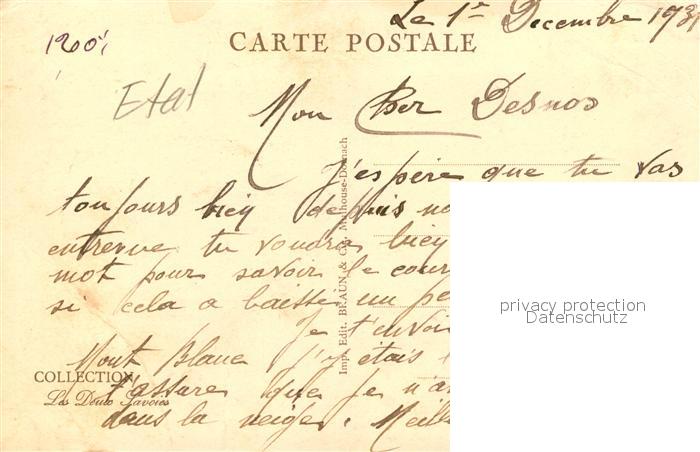 Le 1er Decembre 193
1200
CARTE POSTALE
Etat
Mon Cher Desnos
J'espère que tu vas
toujours bien depuis no
entrevue tu voudras bien
mot pour savoir le cour
si cela a baissé un pe
Je t'envoi
Mont Blanc j'y étais
t'assure que je n'a
dans la neige. Meill
COLLECTION
Les Deux Savoies
Imp. Edit. BRAUN & Cie, Mulhouse-Dornach
privacy protection
Datenschutz